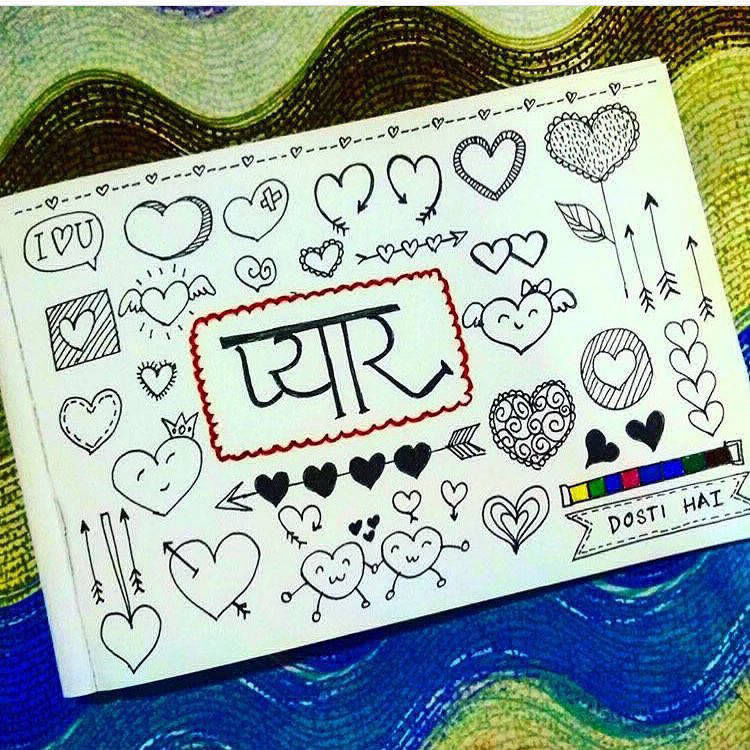 I ♡ U
प्यार
DOSTI HAI